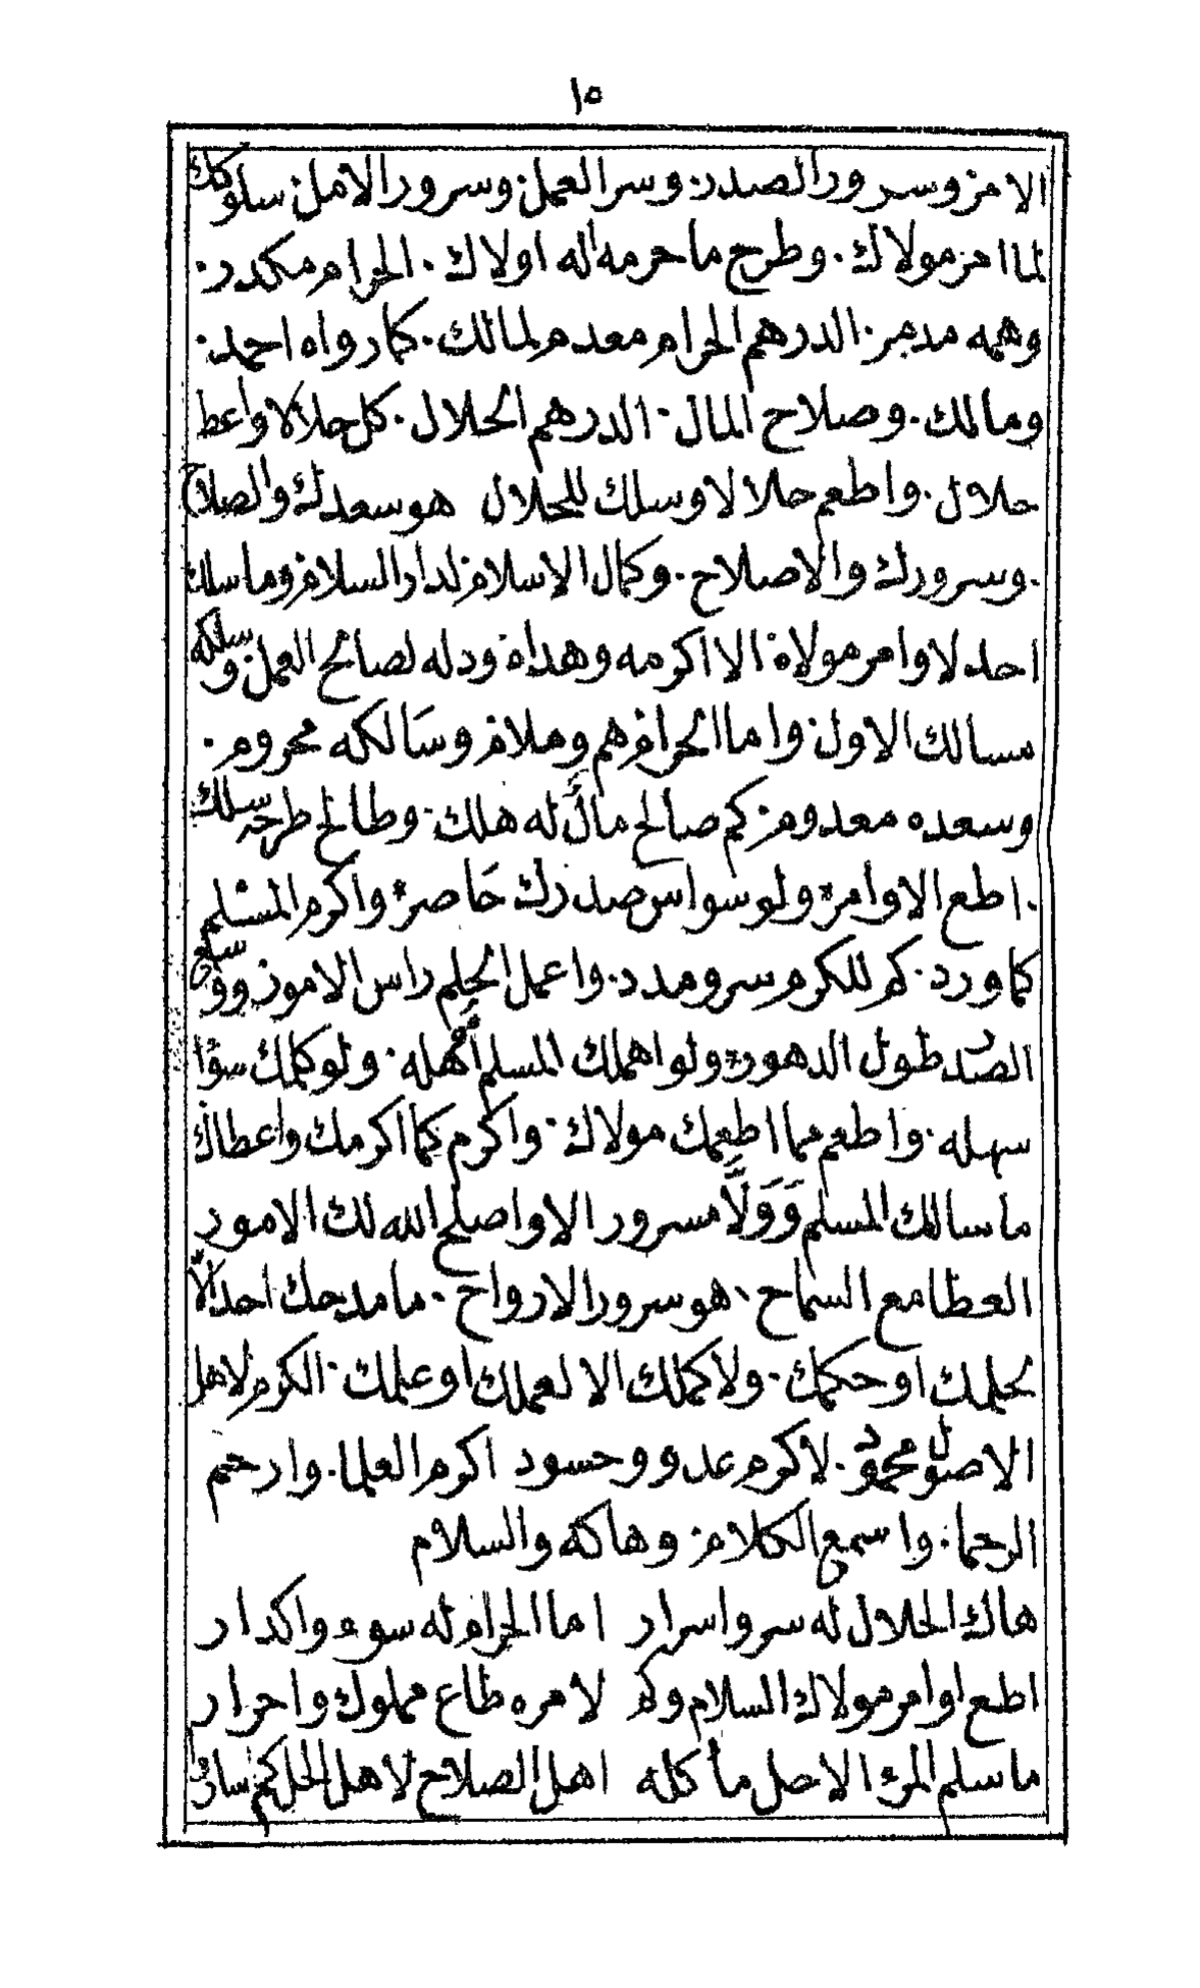 ١٥
الامر وسرور الصدر. وسر العمل. وسرور الامل. سلوكك
لما امر مولاك. وطرح ما حرمه اله اولاك. الحرام مكدر.
وهمه مدمر. الدرهم الحرام معدم لمالك. كما رواه احمد.
ومالك. وصلاح المال. الدرهم الحلال. كل حلالا واعط
حلال. واطعم حلالا وسلك للحلال هو سعدك والصلاح
.وسرورك والاصلاح. وكمال الاسلام لدار السلام وما سلك
احد لاوامر مولاه. الا اكرمه وهداه ودله لصالح العمل. وسلكه
مسالك الاول. واما الحرام هم وملام وسَالكه محروم.
وسعده معدوم. كم صالح مالَ له هلك. وطالح طرحه سلك
.اطع الاوامر. ولو سواس صدرك حَاصر. واكرم المسلم
كما ورد. كم للكرم سر ومدد. واعمل الحلم راس الامور. ووسع
الصدر طول الدهور. ولو اهملك المسلم أمهله. ولو كلمك سوًا
سهله. واطعم مما اطعمك مولاك. واكرم كما اكرمك واعطاك
ما سالك المسلم وَوَلَّا مسرور الا واصلح الله لك الامور
العطا مع السماح. هو سرور الارواح. ما مدحك احد الَّا
لحلمك او حكمك. ولا كملك الا لعملك او علمك. الكرم لاهل
الاصول محمود. لا كرم عدو وحسود اكرم العلما. وارحم
الرحما. واسمع الكلام. وهاكه والسلام
هاك الحلال له سر واسرار اما الحرام له سوء واكدار
اطع اوامر مولاك السلام وكم لامره طاع مملوك واحرار
ما سلم المرء الا حل مأكله اهل الصلاح لاهل الحل كم ساروا